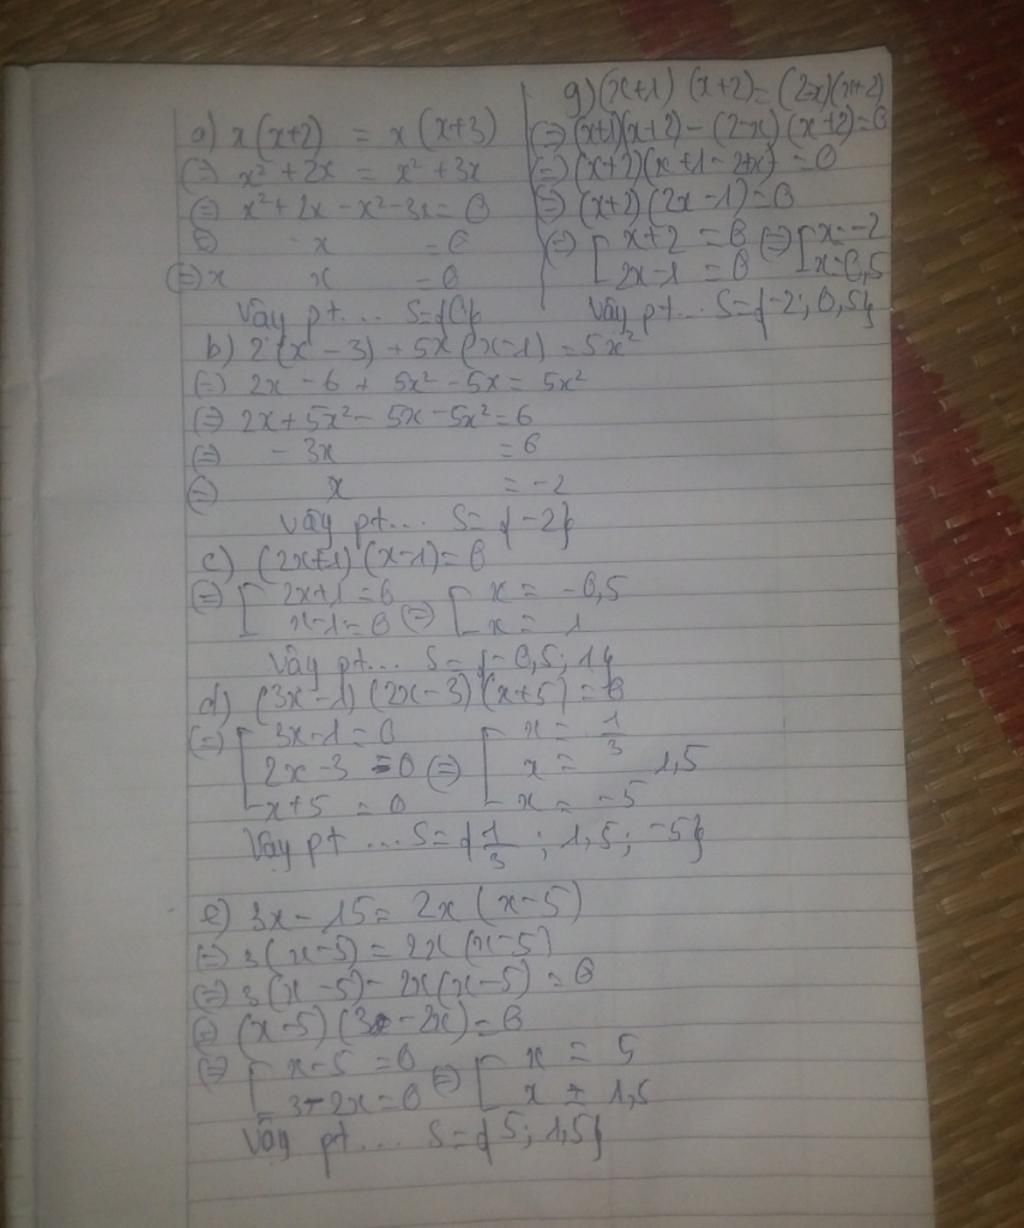 a) x(x+2) = x(x+3)
(=) x² + 2x = x² + 3x
(=) x² + 2x - x² - 3x = 0
(=) - x = 0
(=) x x = 0
Vậy pt... S={0}
g) (x+1) (x+2) = (2-x)(x+2)
(=) (x+1)(x+2) - (2-x) (x+2) = 0
(=) (x+2) (x+1-2+x) = 0
(=) (x+2) (2x-1) = 0
(=) [ x+2 = 0 (=) [ x = -2
2x-1 = 0 x = 0,5
Vậy pt... S={-2; 0,5}
b) 2(x-3) + 5x(x-1) = 5x²
(=) 2x - 6 + 5x² - 5x = 5x²
(=) 2x + 5x² - 5x - 5x² = 6
(=) - 3x = 6
(=) x = -2
Vậy pt... S= {-2}
c) (2x+1) (x-1) = 0
(=) [ 2x+1 = 0 (=) [ x = -0,5
x-1 = 0 x = 1
Vậy pt... S= {-0,5; 1}
d) (3x-1) (2x-3) (x+5) = 0
(=) [ 3x-1 = 0 (=) [ x = 1/3
2x-3 = 0 x = 1,5
x+5 = 0 x = -5
Vậy pt ... S= {1/3 ; 1,5; -5}
e) 3x - 15 = 2x (x-5)
(=) 3(x-5) = 2x (x-5)
(=) 3(x-5) - 2x(x-5) = 0
(=) (x-5) (3 - 2x) = 0
(=) [ x-5 = 0 (=) [ x = 5
3-2x = 0 x = 1,5
Vậy pt... S={5; 1,5}